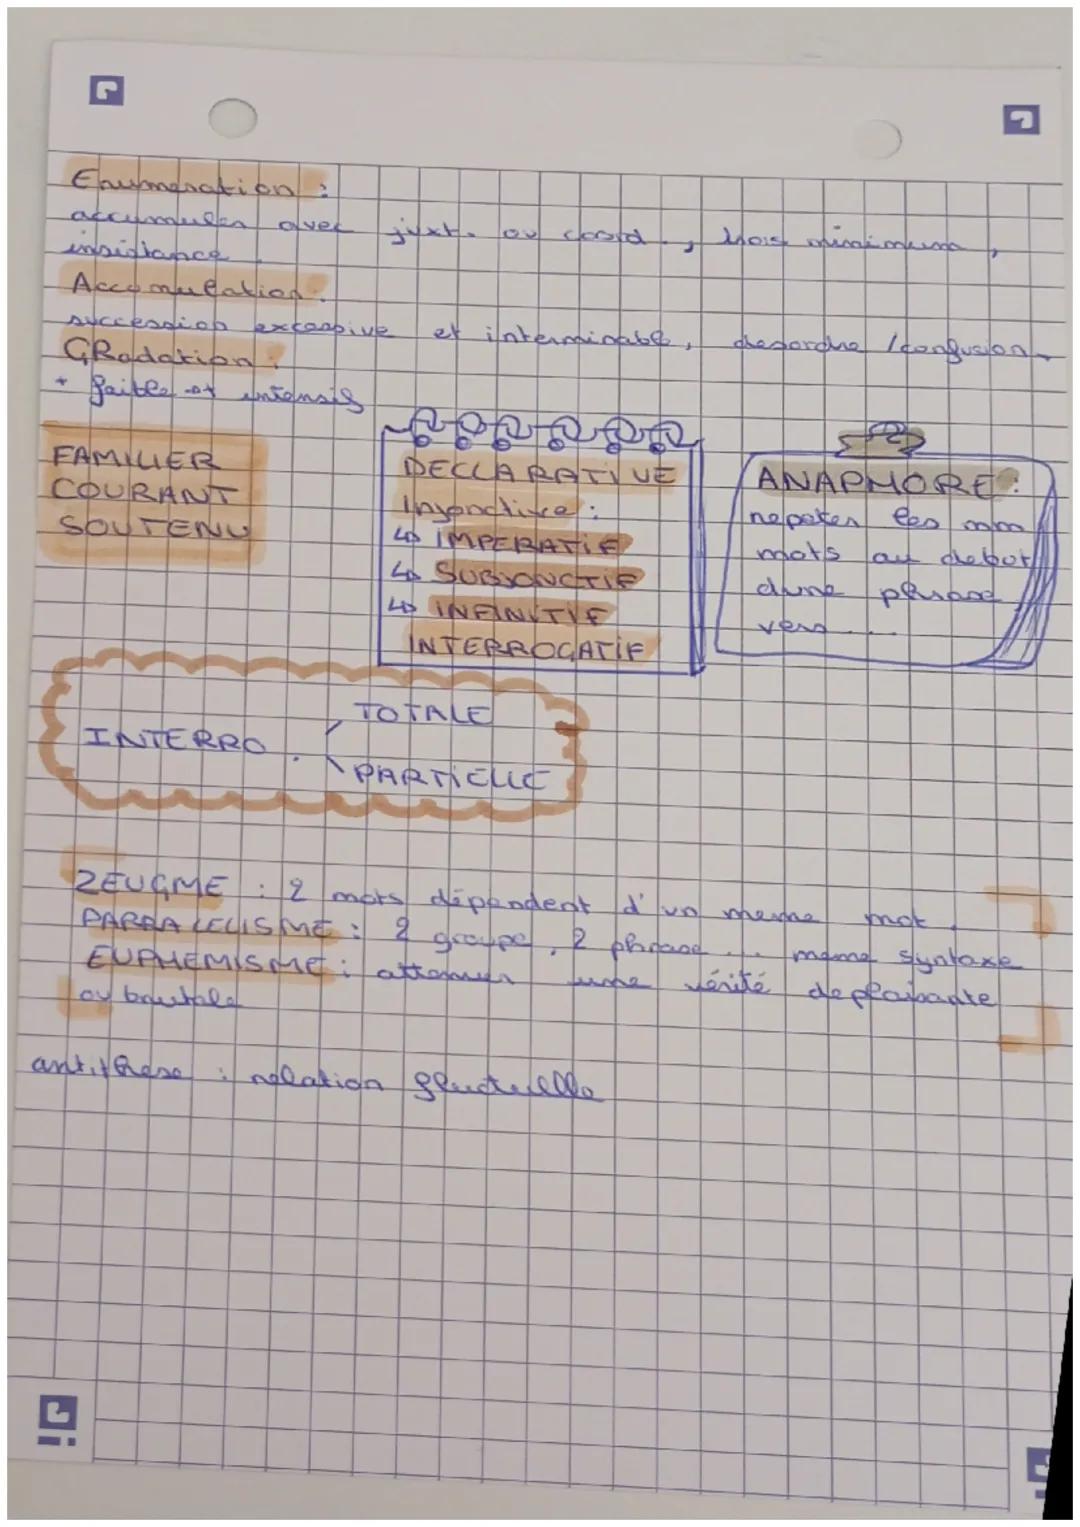 Enumeration :
accumuler avec juxt. ou coord., trois minimum,
insistance
Accumulation :
succession excessive et interminable, desordre / confusion
GRadation :
+ faible et intensif
FAMILIER
COURANT
SOUTENU
DECLARATIVE
Injonctive :
↳ IMPERATIF
↳ SUBJONCTIF
↳ INFINITIF
INTERROGATIF
ANAPHORE :
repeter les mm
mots au debut
dune phrase
vers ...
INTERRO.
TOTALE
PARTIELLE
ZEUGME : 2 mots dépendent d'un meme mot.
PARRALELISME : 2 groupe, 2 phrase... meme syntaxe
EUPHEMISME : attenuer une vérité deplaisante
ou brutale
antithese : relation